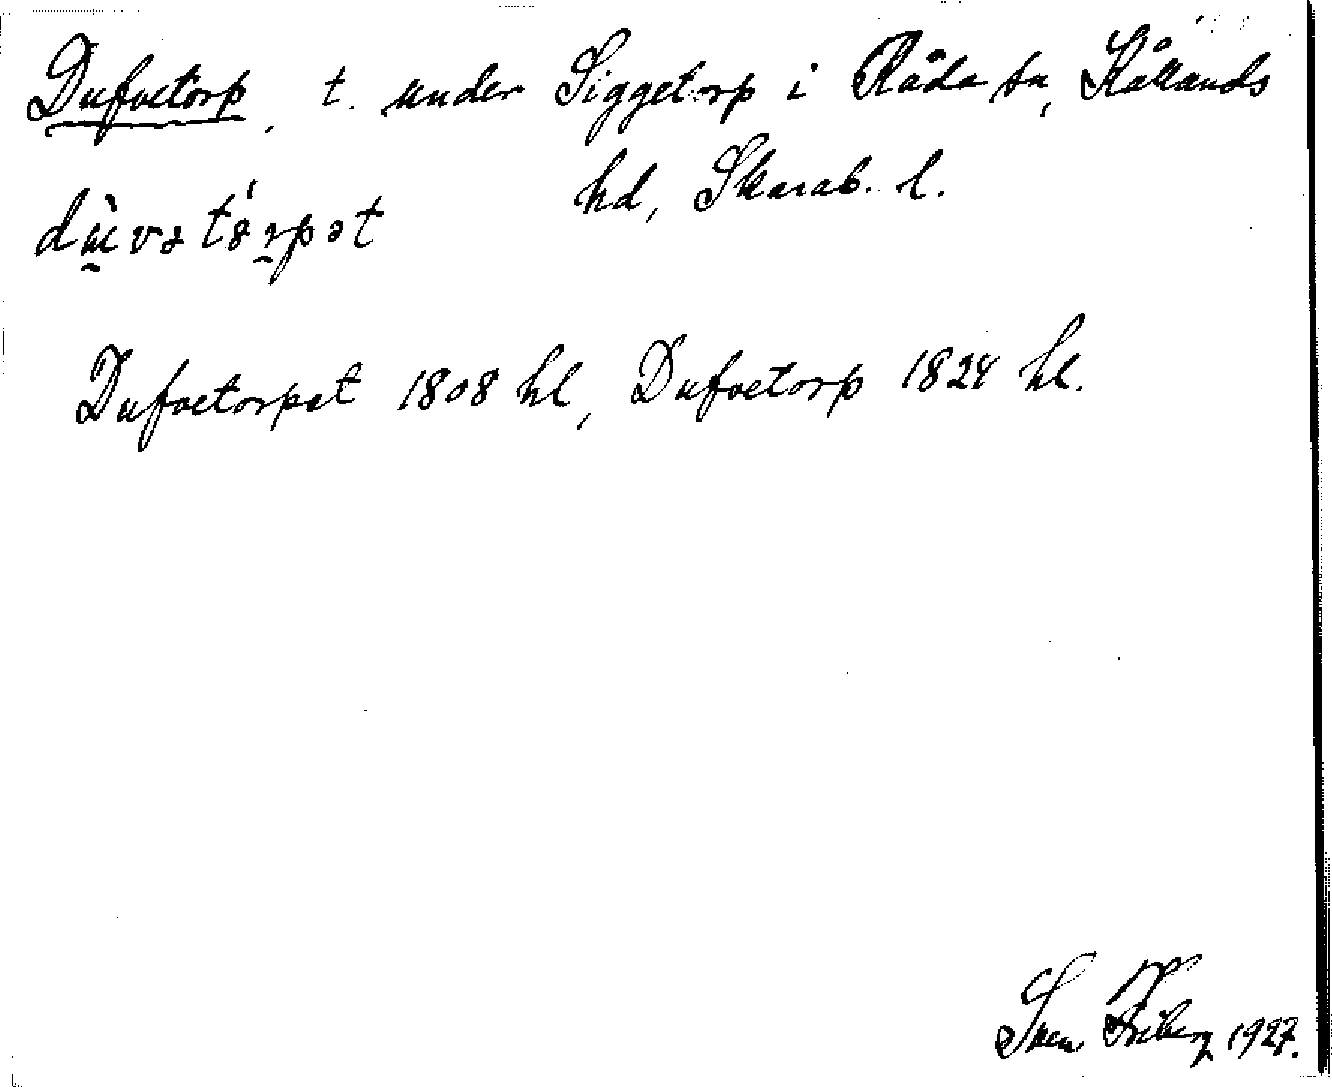 Dufvetorp, t. under Siggetorp i Råda sn, Kållands
hd, Skarab. l.
dùvətórpət
Dufvetorpet 1808 hl, Dufvetorp 1824 hl.
Sven Friberg 1927.